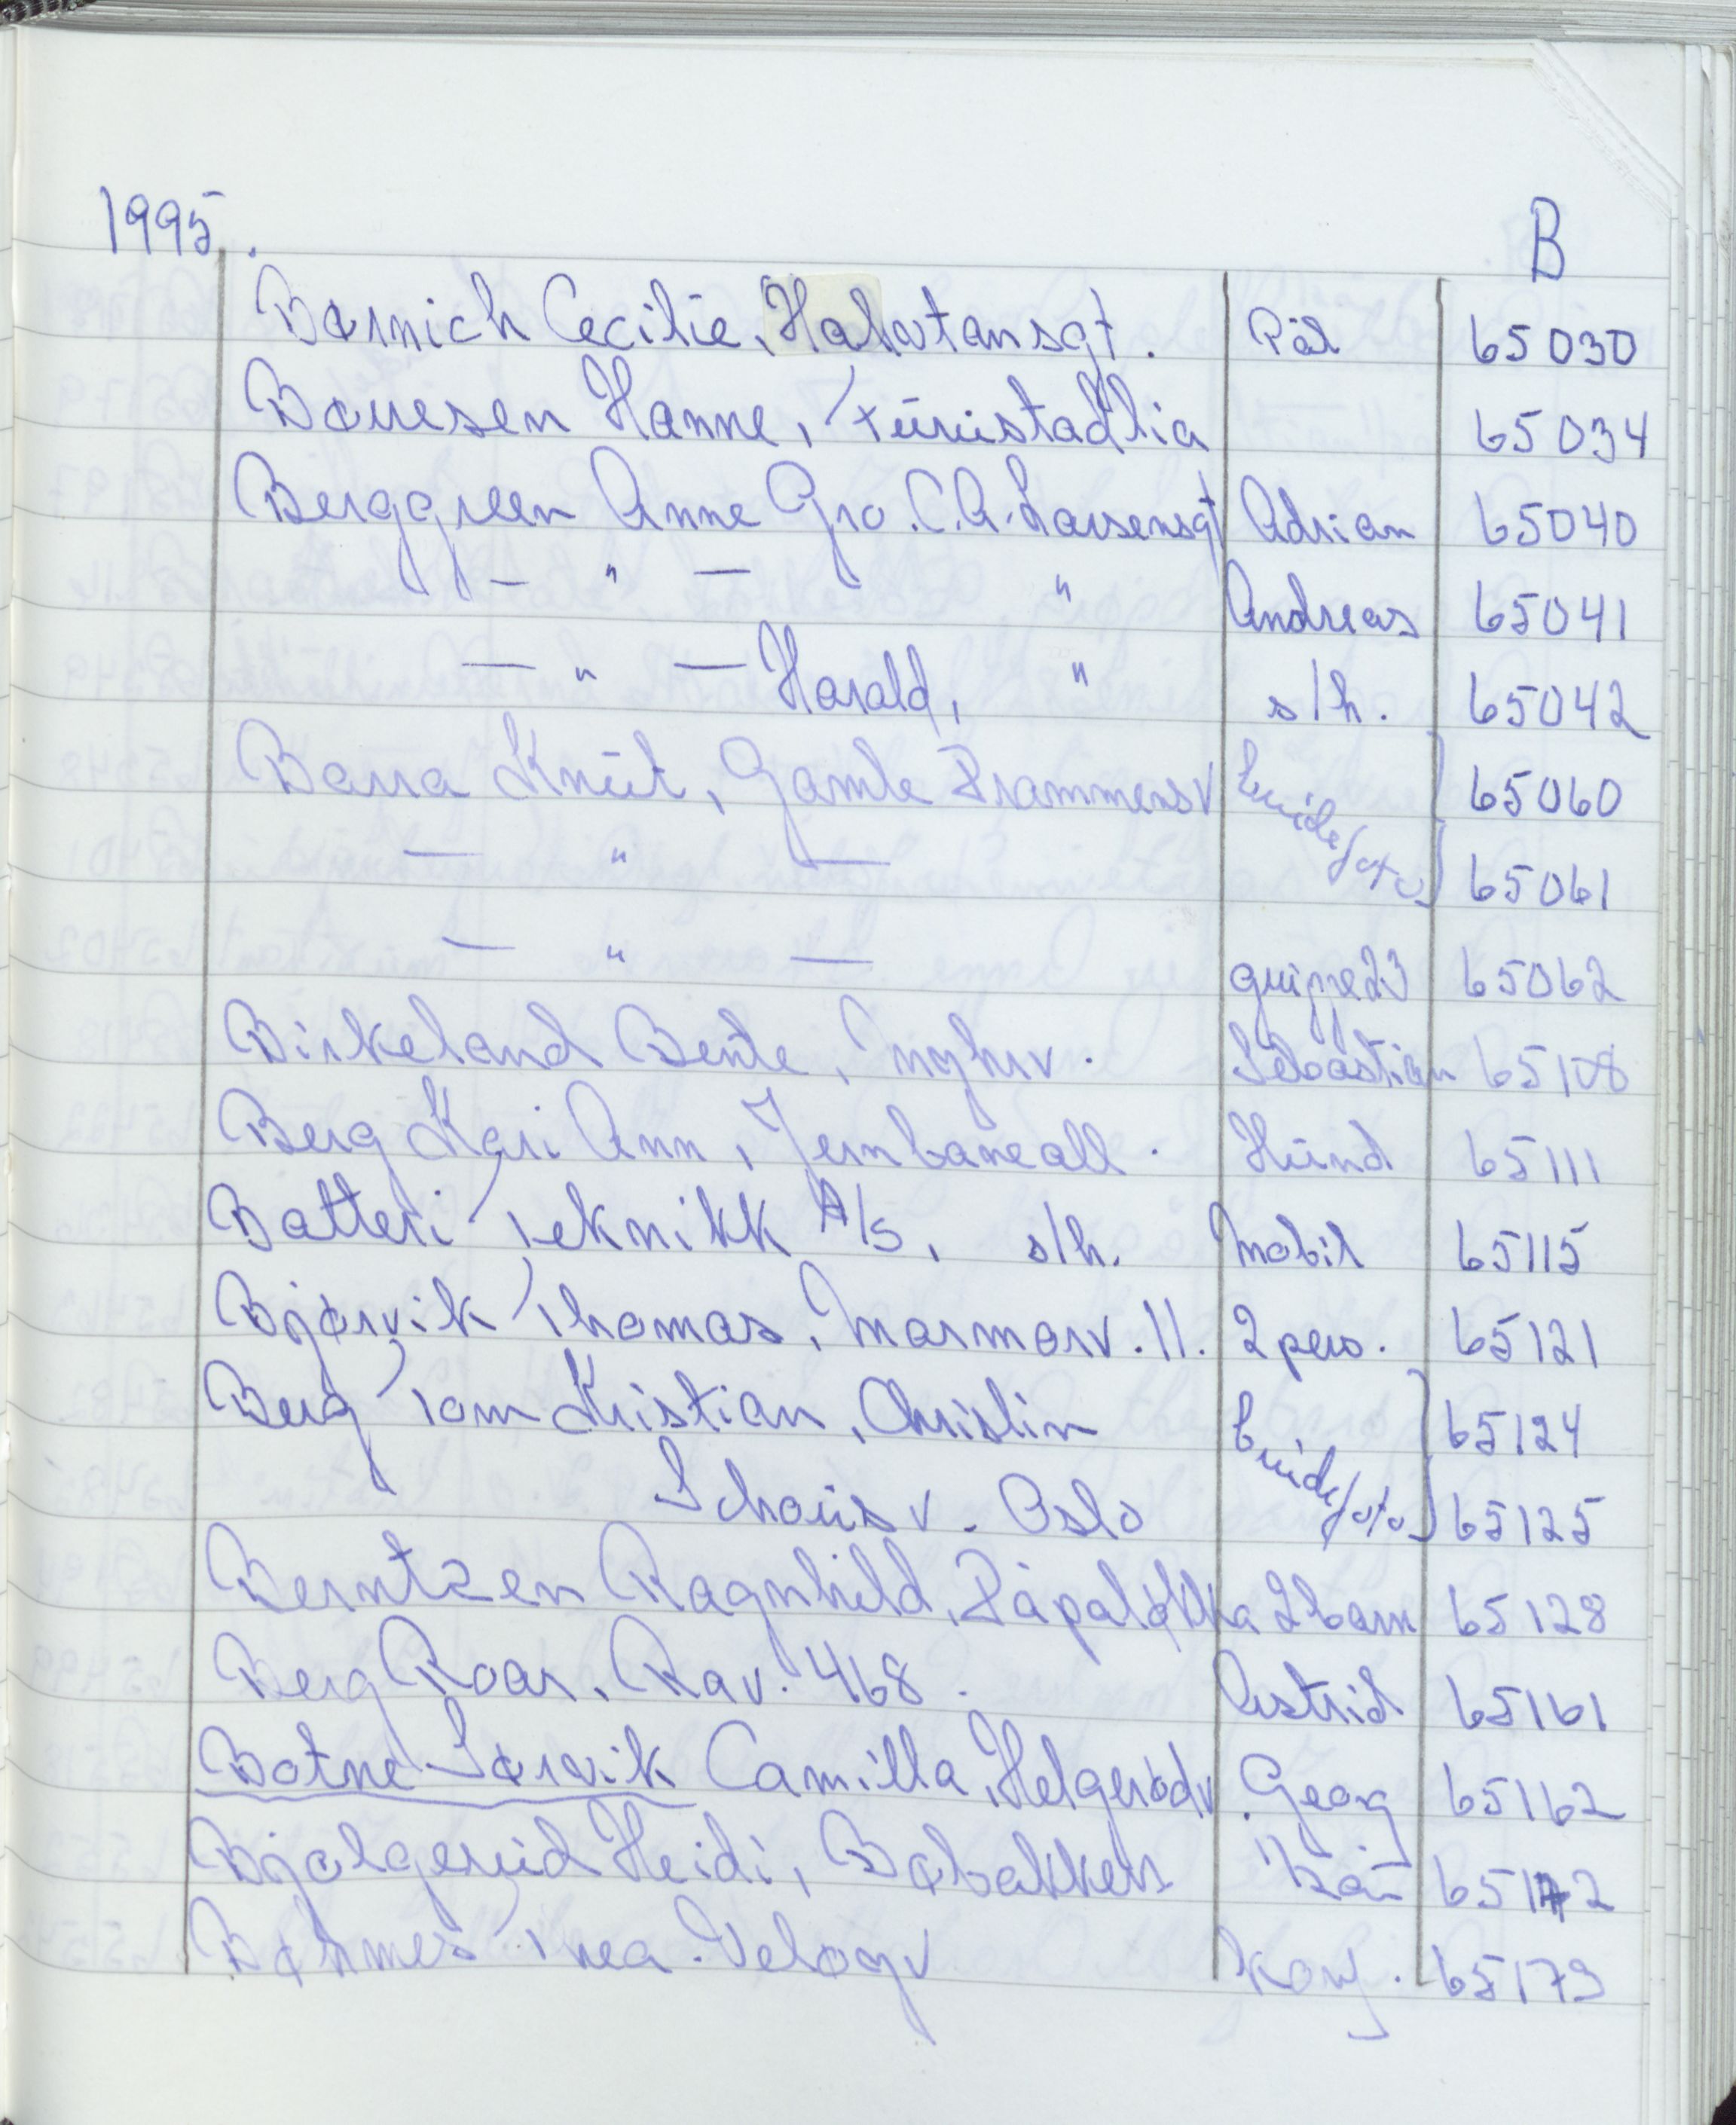 1995. B
Børnich Cecilie, Halvtansgt. Pål 65030
Bøuesen Hanne, Furustadlia 65034
Berggreen Anne Gro. C.A. Larsensgt Adrian 65040
— " — " Andreas 65041
— " — Harald, " s/h. 65042
Barra Knut, Gamle Drammensv brude/foto 65060
— " — 65061
— " — gruppe 23 65062
Birkeland Bente, Myhrv. Sebastian 65108
Berg Kari Ann, Jernbaneall. Hund 65111
Batteri Teknikk A/S, s/h. Mobil 65115
Bjørvik Thomas, Marmorv. 11. 2 pers. 65121
Berg Tom Kristian, Christin brude/foto 65124
Schousv. Oslo 65125
Berntzen Ragnhild, 2 barn 65128
Berg Roar, Rav. 468. Astrid 65161
Botne Sørvik Camilla, Helgerødv. Georg 65162
Bjølgerud Heidi, Bøbakken 65172
Bøhmer Thea. Selagv Konf. 65173